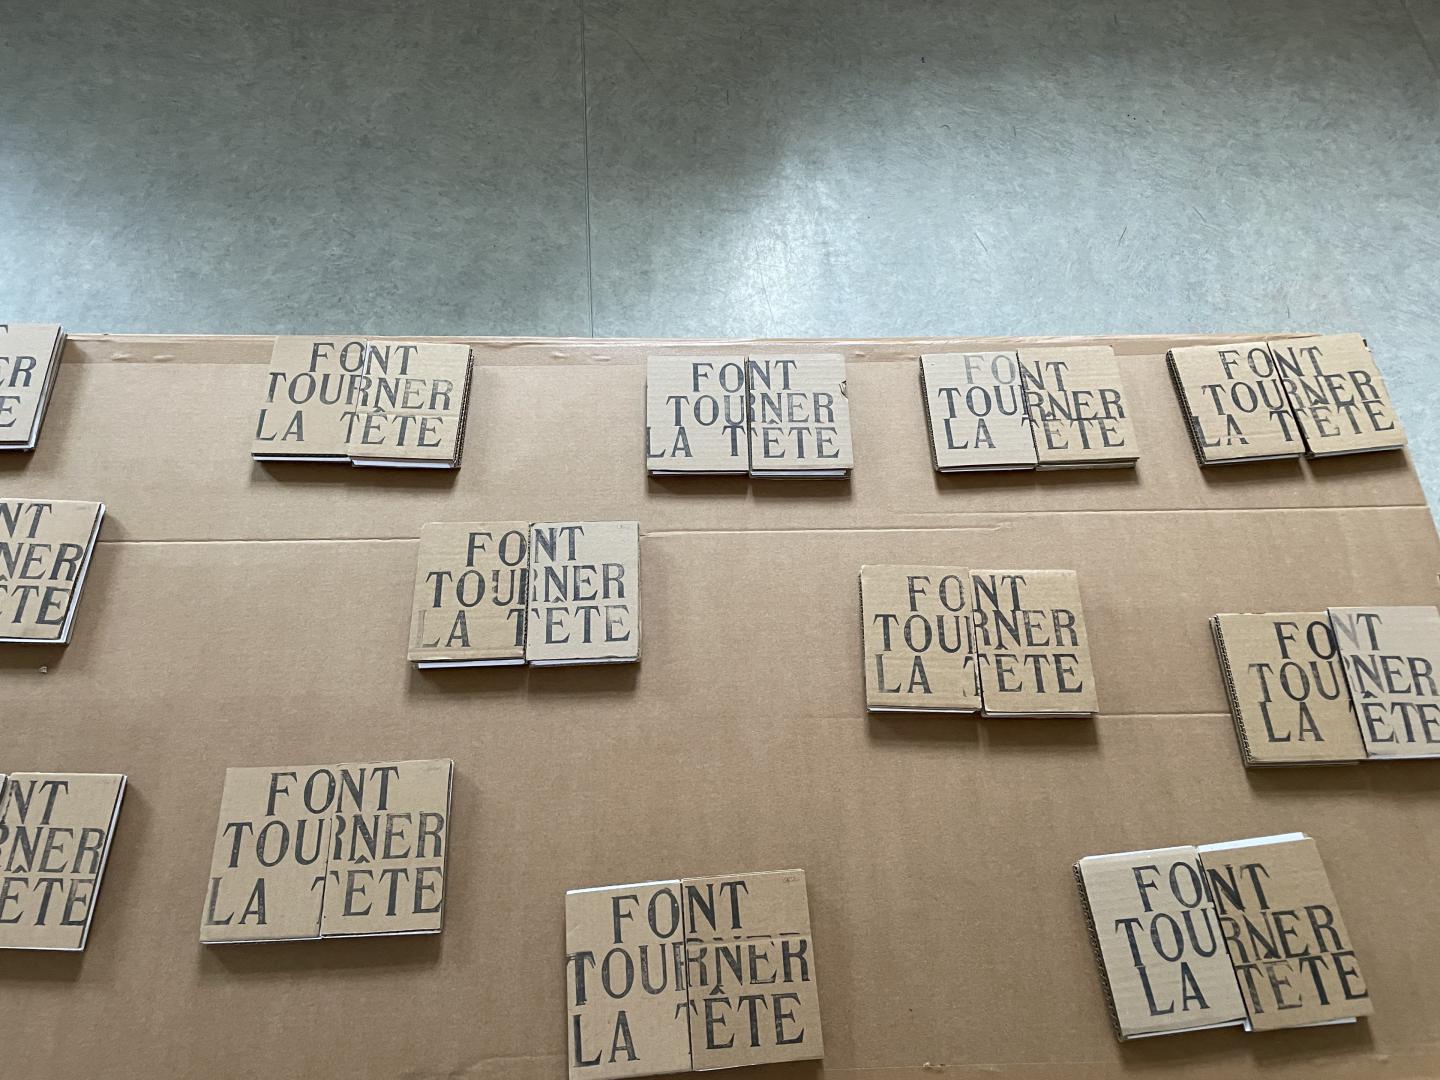 ER
E
FONT
TOURNER
LA TÊTE
FONT
TOURNER
LA TÊTE
FONT
TOURNER
LA TÊTE
FONT
TOURNER
LA TÊTE
NT
NER
ÊTE
FONT
TOURNER
LA TÊTE
FONT
TOURNER
LA TÊTE
FONT
TOURNER
LA ÊTE
NT
RNER
ÊTE
FONT
TOURNER
LA TÊTE
FONT
TOURNER
LA TÊTE
FONT
TOURNER
LA TÊTE